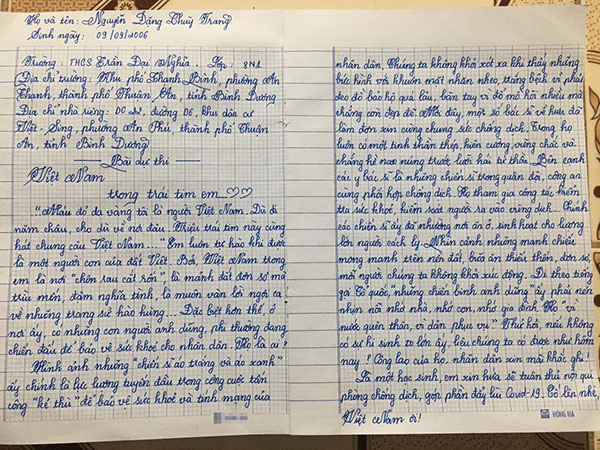 Họ và tên: Nguyễn Đặng Thuỳ Trang
Sinh ngày: 09/09/2006
Trường: THCS Trần Đại Nghĩa. Lớp: 8N1
Địa chỉ trường: Khu phố Thạnh Bình, phường An
Thạnh, thành phố Thuận An, tỉnh Bình Dương
Địa chỉ nhà riêng: DO, đường D6, khu dân cư
Việt-Sing, phường An Phú, thành phố Thuận
An, tỉnh Bình Dương
Bài dự thi
Việt Nam
trong trái tim em
"..Máu đỏ da vàng tôi là người Việt Nam. Dù đi
năm châu, cho dù về nơi đâu. Triệu trái tim này cùng
hát chung câu Việt Nam..." Em luôn tự hào khi được
là một người con của đất Việt. Bởi, Việt Nam trong
em là nơi "chôn rau cắt rốn", là mảnh đất đơn sơ mà
trìu mến, đằm nghĩa tình, là muôn vàn lời ngợi ca
về những trang sử hào hùng... Đặc biệt hơn thế, ở
nơi ấy, có những con người anh dũng, phi thường đang
chiến đấu để bảo vệ sức khoẻ cho nhân dân. Họ là ai?
Hình ảnh những "chiến sĩ áo trắng và áo xanh"
ấy chính là lực lượng tuyến đầu trong công cuộc tấn
công "kẻ thù" để bảo vệ sức khoẻ và tính mạng của
nhân dân. Chúng ta không khỏi xót xa khi thấy những
bức hình với khuôn mặt nhăn nheo, trắng bệch vì phải
đeo đồ bảo hộ quá lâu, bàn tay vì đổ mồ hôi nhiều mà
chẳng còn đẹp đẽ. Mới đây, một số bác sĩ về hưu đã
làm đơn xin cùng chung sức chống dịch. Trong họ
luôn có một tinh thần thép, kiên cường, vững chắc và
chẳng hề nao núng trước lưỡi hái tử thần. Bên cạnh
các y bác sĩ là những chiến sĩ trong quân đội, công an
cùng phối hợp chống dịch. Họ tham gia công tác kiểm
tra sức khoẻ, kiểm soát người ra vào vùng dịch... Chính
các chiến sĩ ấy đã nhường nơi ăn ở, sinh hoạt cho lượng
lớn người cách ly. Nhìn cảnh những manh chiếu
mong manh trên nền đất, bữa ăn thiếu thốn, đơn sơ,
mỗi người chúng ta không khỏi xúc động. Đi theo tiếng
gọi Tổ quốc, "những chiến binh anh dũng" ấy phải nén
nhịn nỗi nhớ nhà, nhớ con, nhớ gia đình. Họ "vì
nước quên thân, vì dân phục vụ". Thử hỏi, nếu không
có sự hi sinh to lớn ấy, liệu chúng ta có được như hôm
nay? Công lao của họ, nhân dân xin mãi khắc ghi!
Là một học sinh, em xin hứa sẽ tuân thủ nội qui
phòng chống dịch, góp phần đẩy lùi Covid-19. Cố lên nhé,
Việt Nam ơi!
HỒNG HÀ